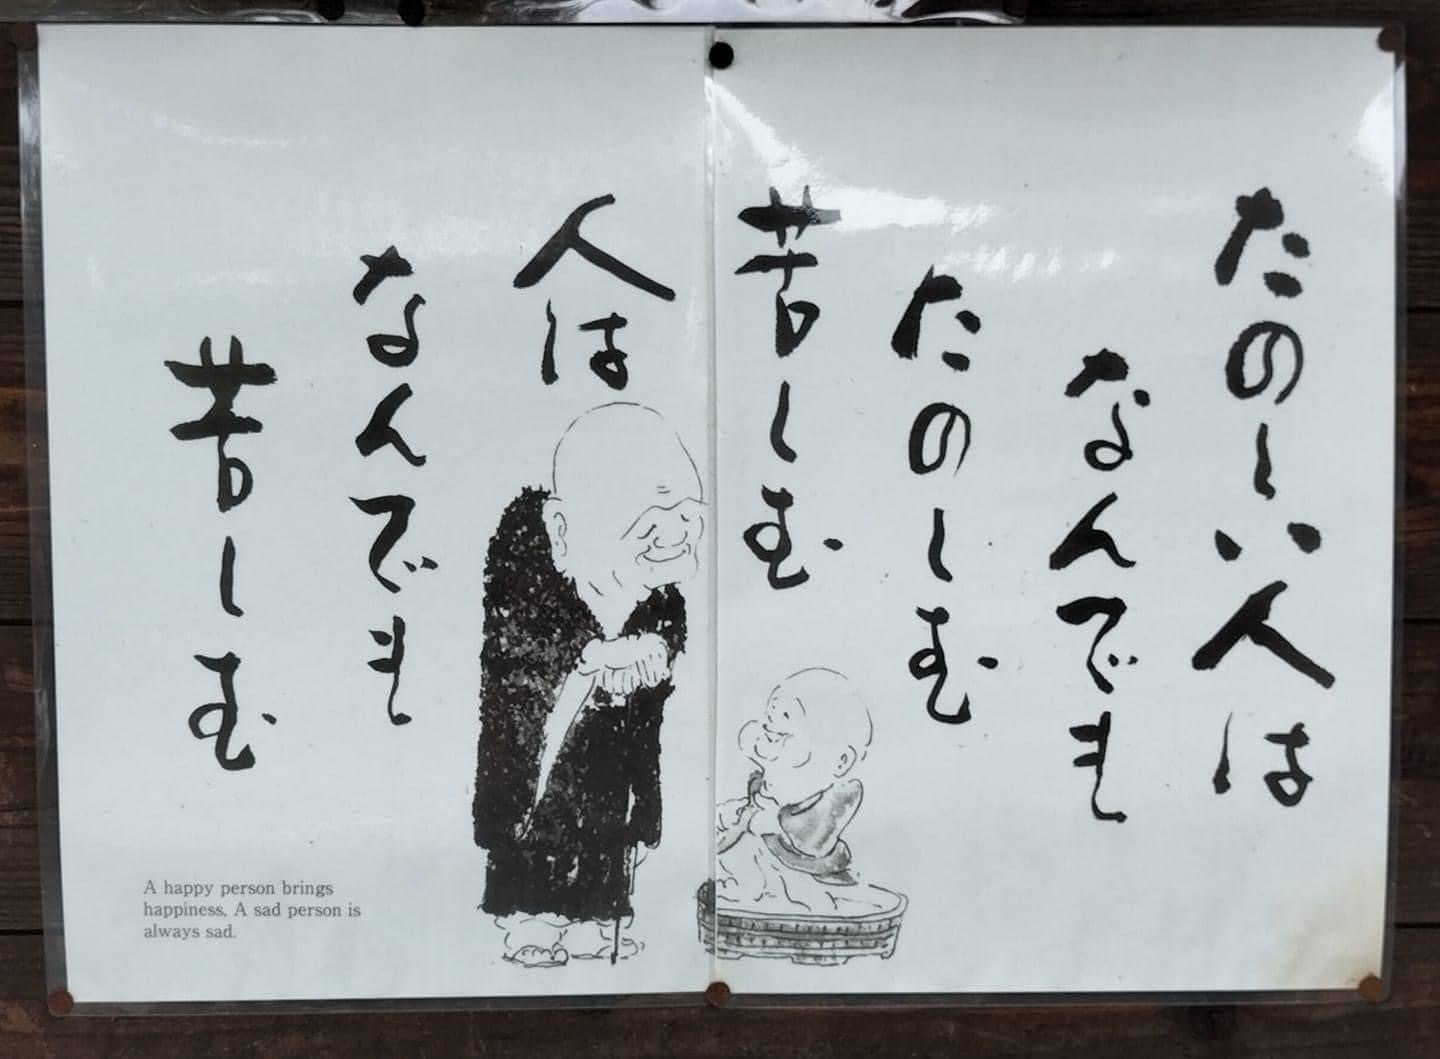 たのしい人は
なんでも
たのしむ
苦しむ
人は
なんでも
苦しむ
A happy person brings
happiness, A sad person is
always sad.